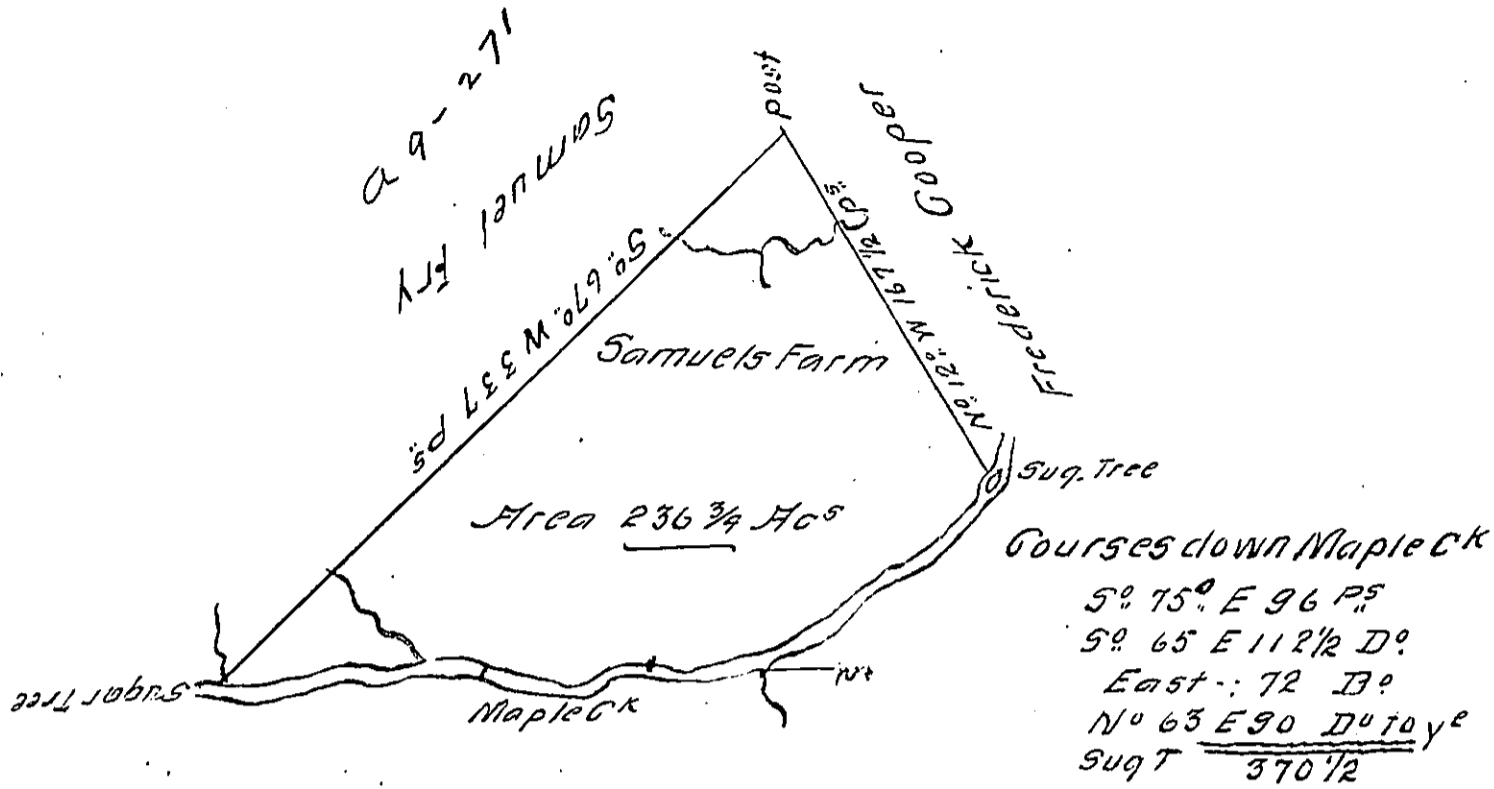 a 9-271
Samuel Fry
post
Frederick Cooper
So. 67o. W 337 Ps.
No. 12o. W 167 1/2 Ps.
Samuels Farm
Sug. Tree
Area 236 3/4 Acs
Courses down Maple Ck
So. 75o. E 96 Ps
So. 65 E 112 1/2 Do.
East -: 72 Do
No 63 E 90 Do to ye
Sug T 370 1/2
Sugar Tree
Maple Ck